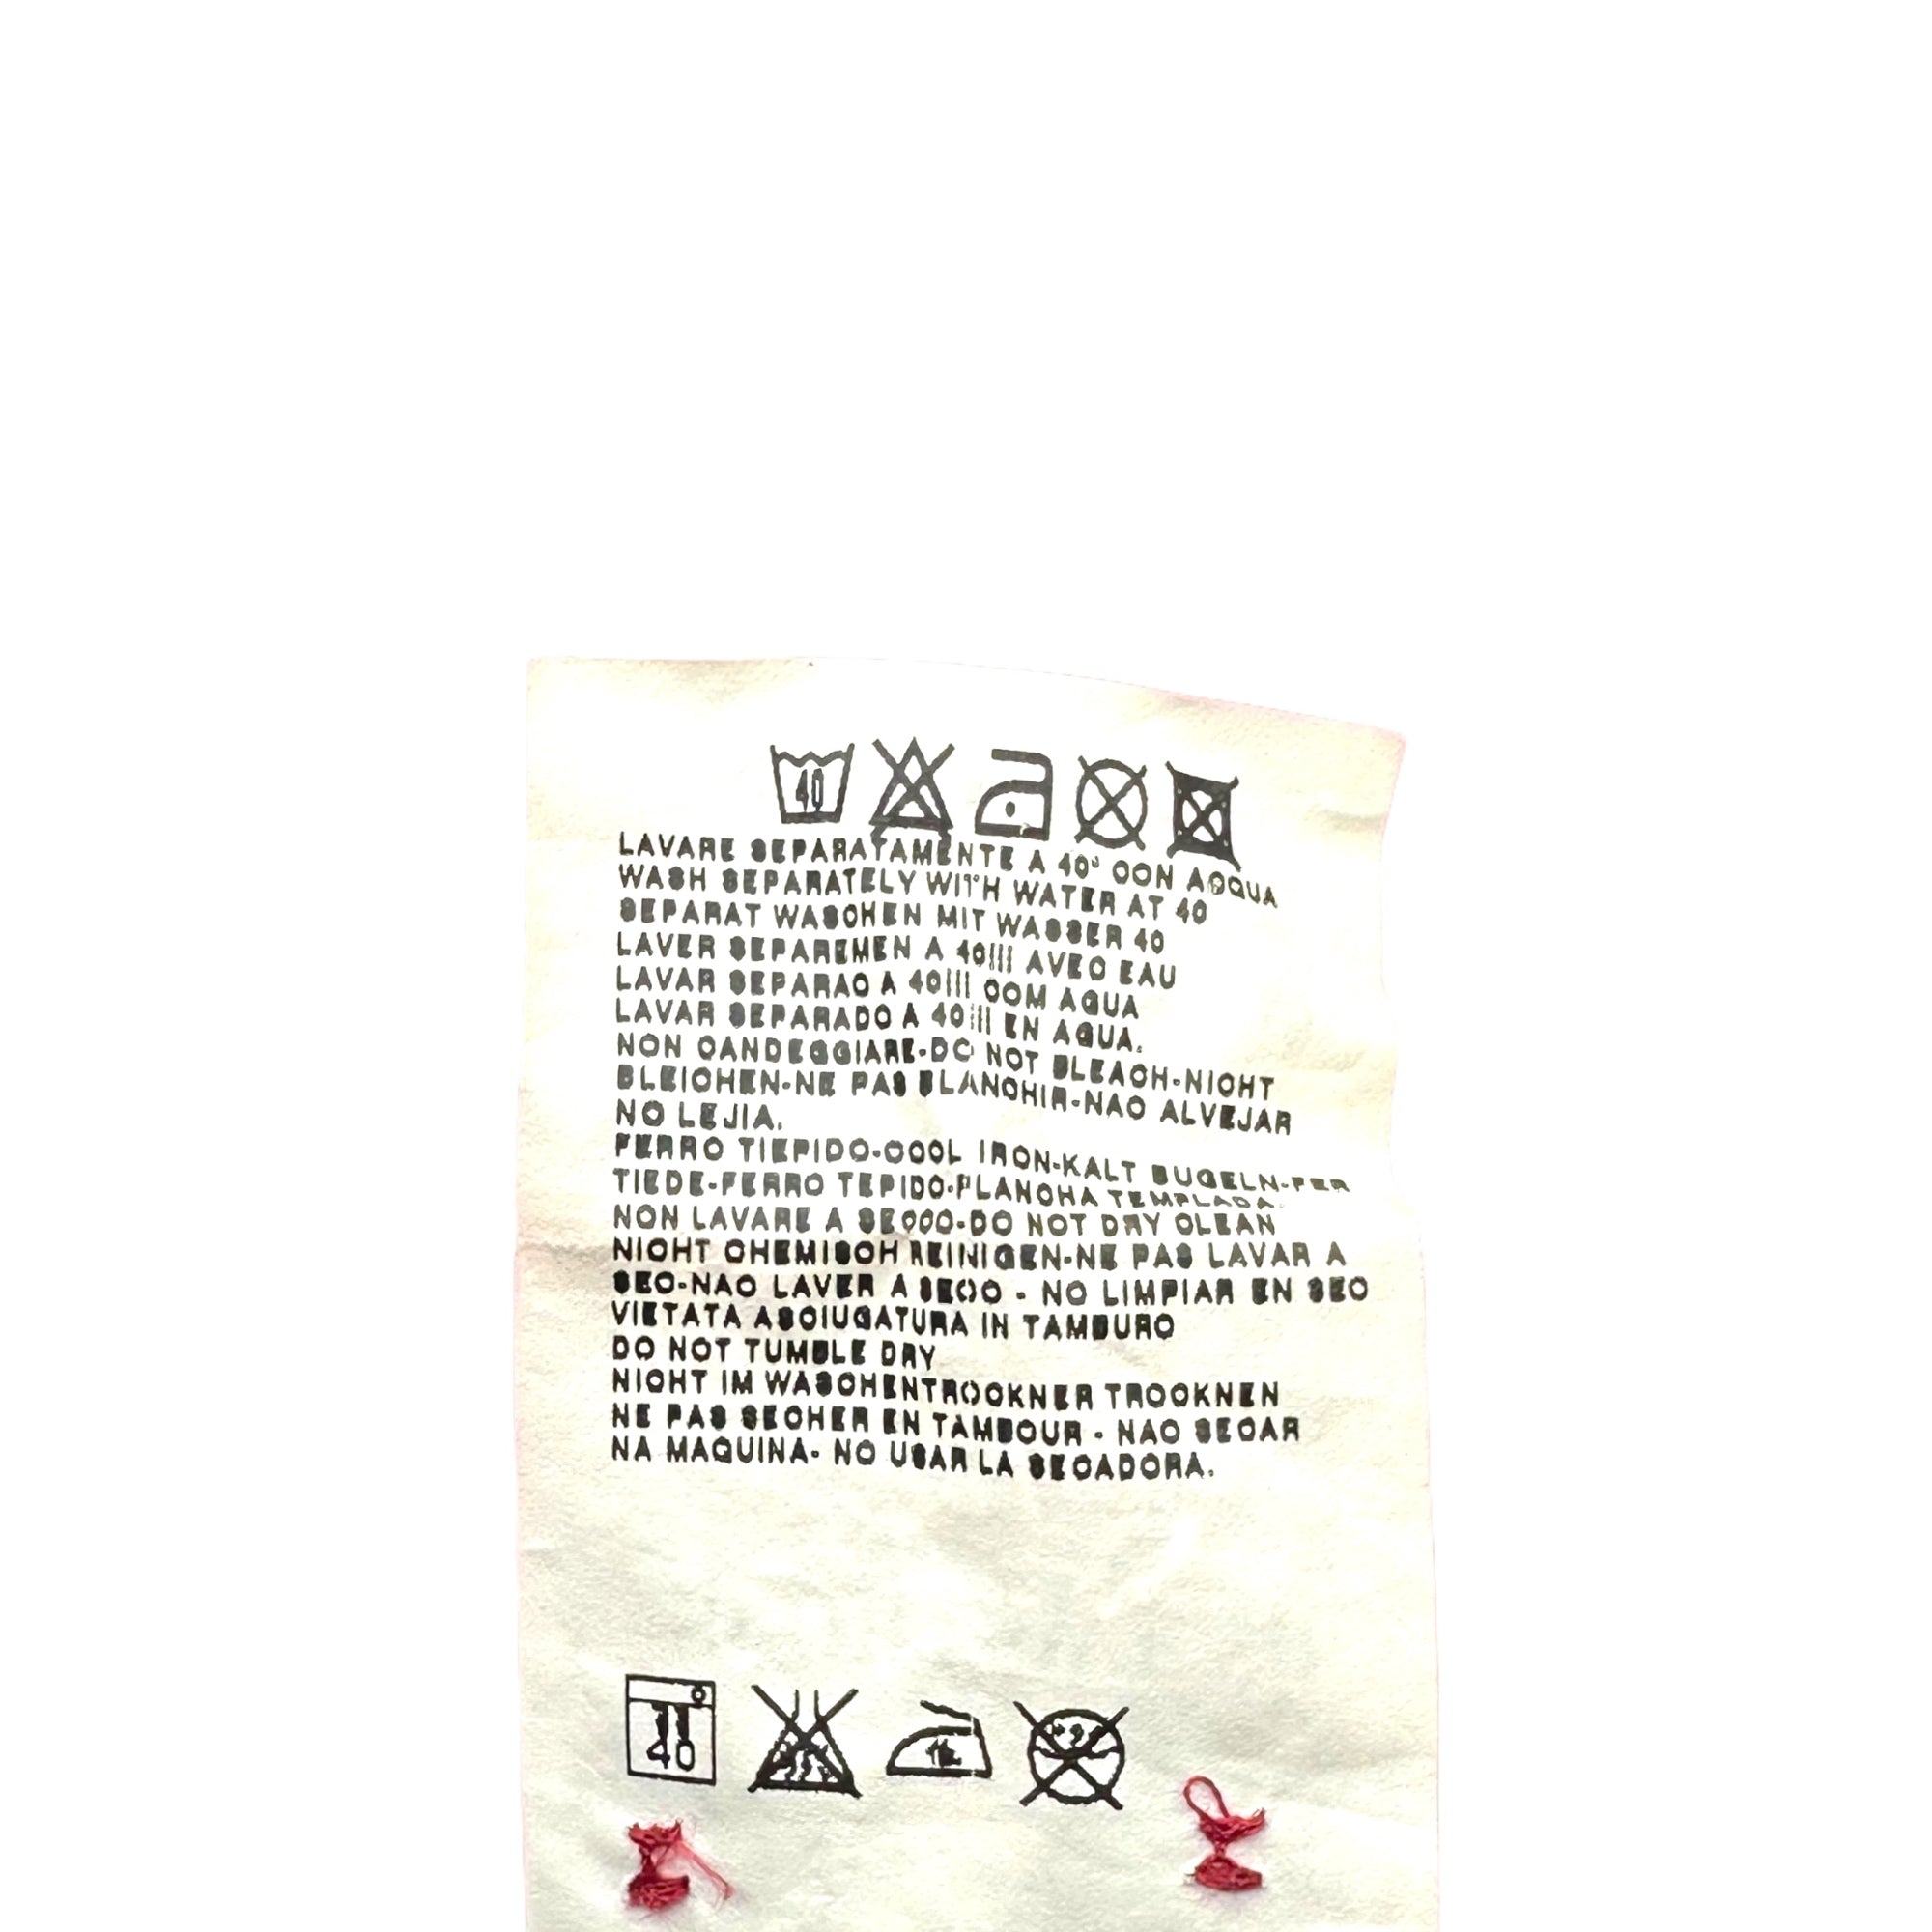 40
LAVARE SEPARATAMENTE A 40° CON ACQUA
WASH SEPARATELY WITH WATER AT 40
SEPARAT WASCHEN MIT WASSER 40
LAVER SEPAREMEN A 40||| AVEC EAU
LAVAR SEPARAO A 40||| COM AQUA
LAVAR SEPARADO A 40||| EN AQUA.
NON CANDEGGIARE-DO NOT BLEACH-NICHT
BLEICHEN-NE PAS BLANCHIR-NAO ALVEJAR
NO LEJIA.
FERRO TIEPIDO-COOL IRON-KALT BUGELN-FER
TIEDE-FERRO TEPIDO-PLANCHA TEMPLADA.
NON LAVARE A SECCO-DO NOT DRY CLEAN
NICHT CHEMISCH REINIGEN-NE PAS LAVAR A
SEC-NAO LAVER A SECO - NO LIMPIAR EN SEC
VIETATA ASCIUGATURA IN TAMBURO
DO NOT TUMBLE DRY
NICHT IM WASCHENTROCKNER TROCKNEN
NE PAS SECHER EN TAMBOUR - NAO SECAR
NA MAQUINA- NO USAR LA SECADORA.
40